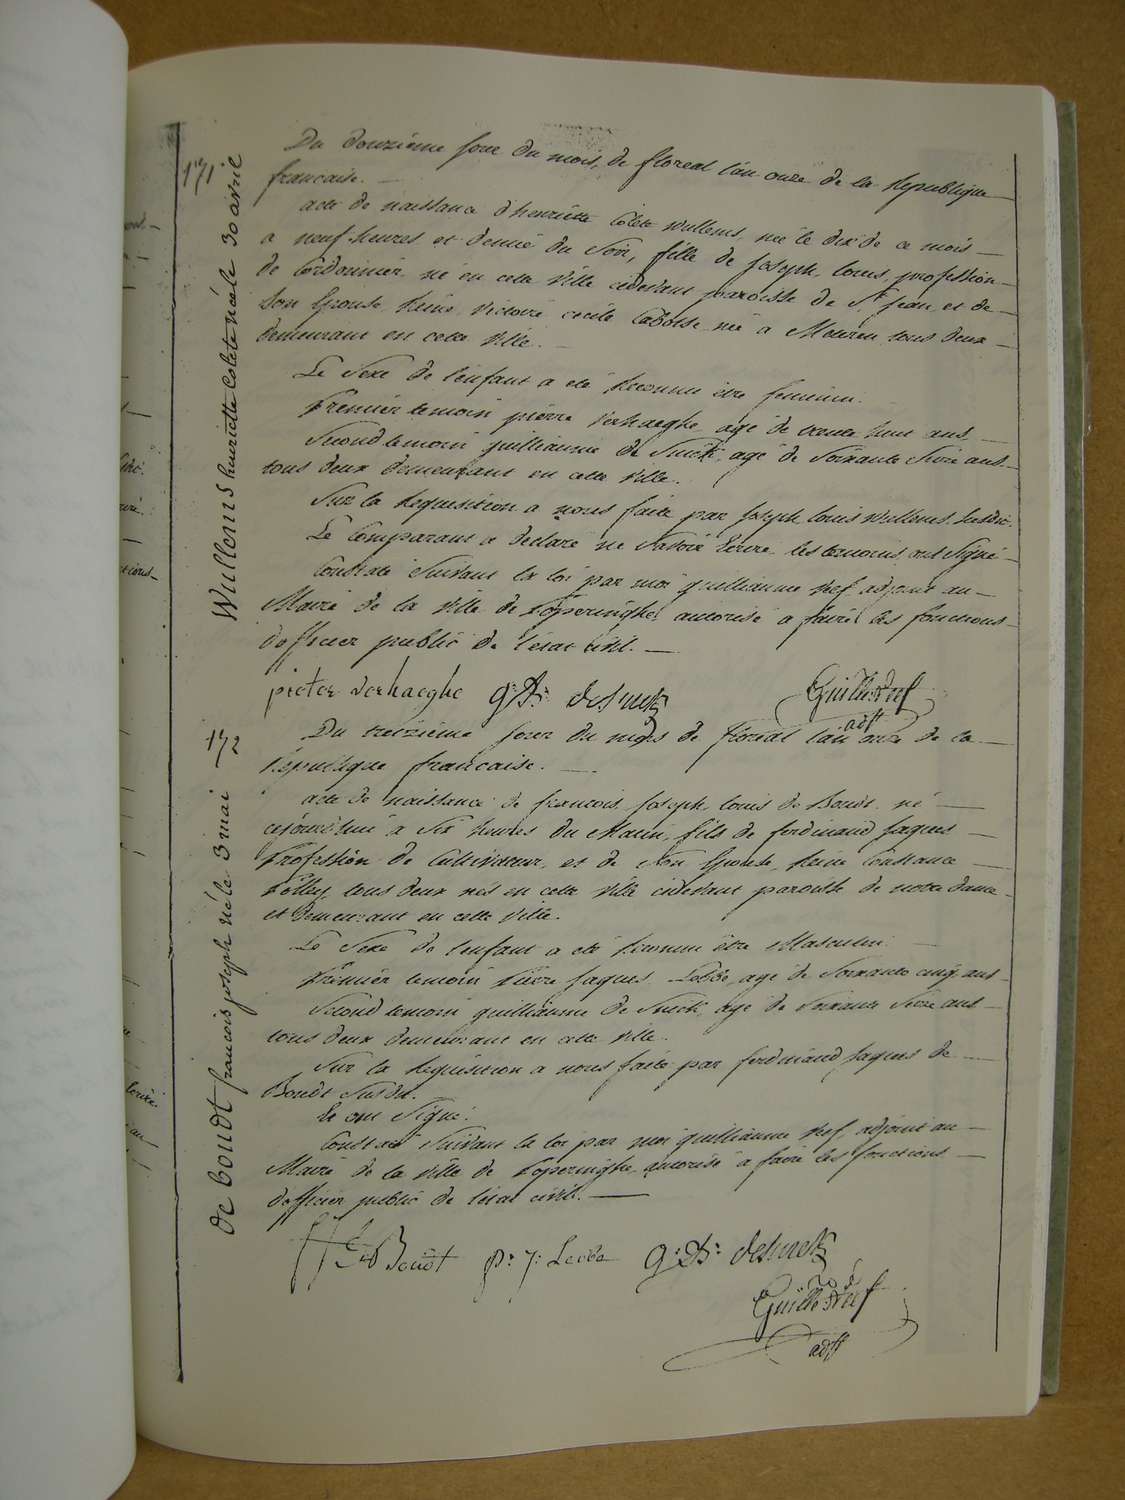 171
Wullems henriette Colete née le 30 avril
Du douzième jour du mois de floreal l'an onze de la Republique
francaise.
acte de naissance d'henriette Colete Wullems, née le dix de ce mois
a neuf heures et demie du Soir, fille de Joseph Louis, profession
de Cordonnier, né en cette Ville cidevant paroisse de St. Jean, et de
Son Epouse Reine Victoire Cecile née a tous deux
demeurant en cette Ville.
Le Sexe de l'enfant a eté Reconnu être feminin.
Premier temoin pierre Verhaeghe, agé de ans
Second temoin guillieaume de Smeck, agé de Soixante Seize ans
tous deux demeurant en cette Ville.
Sur la Requisition a nous faite par Joseph Louis Wullems Susdit.
Le Comparant a declaré ne Savoir Ecrire les temoins ont Signé
Constaté Suivant la loi par moi guilliaume Ref adjoint au
Maire de la Ville de Poperinghe, autorisé a faire les fonctions
d'officier public de l'etat civil.
pieter verhaeghe g: D: desmek Guille Ref
adjt
172
de boudt francois joseph né le 3 mai
Du treizième jour du mois de floreal l'an onze de la
Republique francaise.
acte de naissance de francois Joseph Louis de Boudt, né
cejourd'hui a Six heures du Matin, fils de ferdinand Jaques
Profession de Cultivateur, et de Son Epouse, Reine Constance
tous deux nés en cette Ville cidevant paroisse de notre dame
et demeurant en cette Ville.
Le Sexe de l'enfant a eté Reconnu être Masculin.
Premier temoin Pierre Jaques agé de Soixante cinq ans
Second temoin guilliaume de Smeck, agé de Soixante Seize ans
tous deux demeurant en cette Ville.
Sur la Requisition a nous faite par ferdinand Jaques de
Boudt Susdit.
Et ont Signé.
Constaté Suivant la loi par moi guilliaume Ref, adjoint au
Maire de la Ville de Poperinghe autorisé a faire les fonctions
d'officier public de l'etat civil.
De Boudt p: j: Lebbe g: D: desmek
Guille Ref
adjt